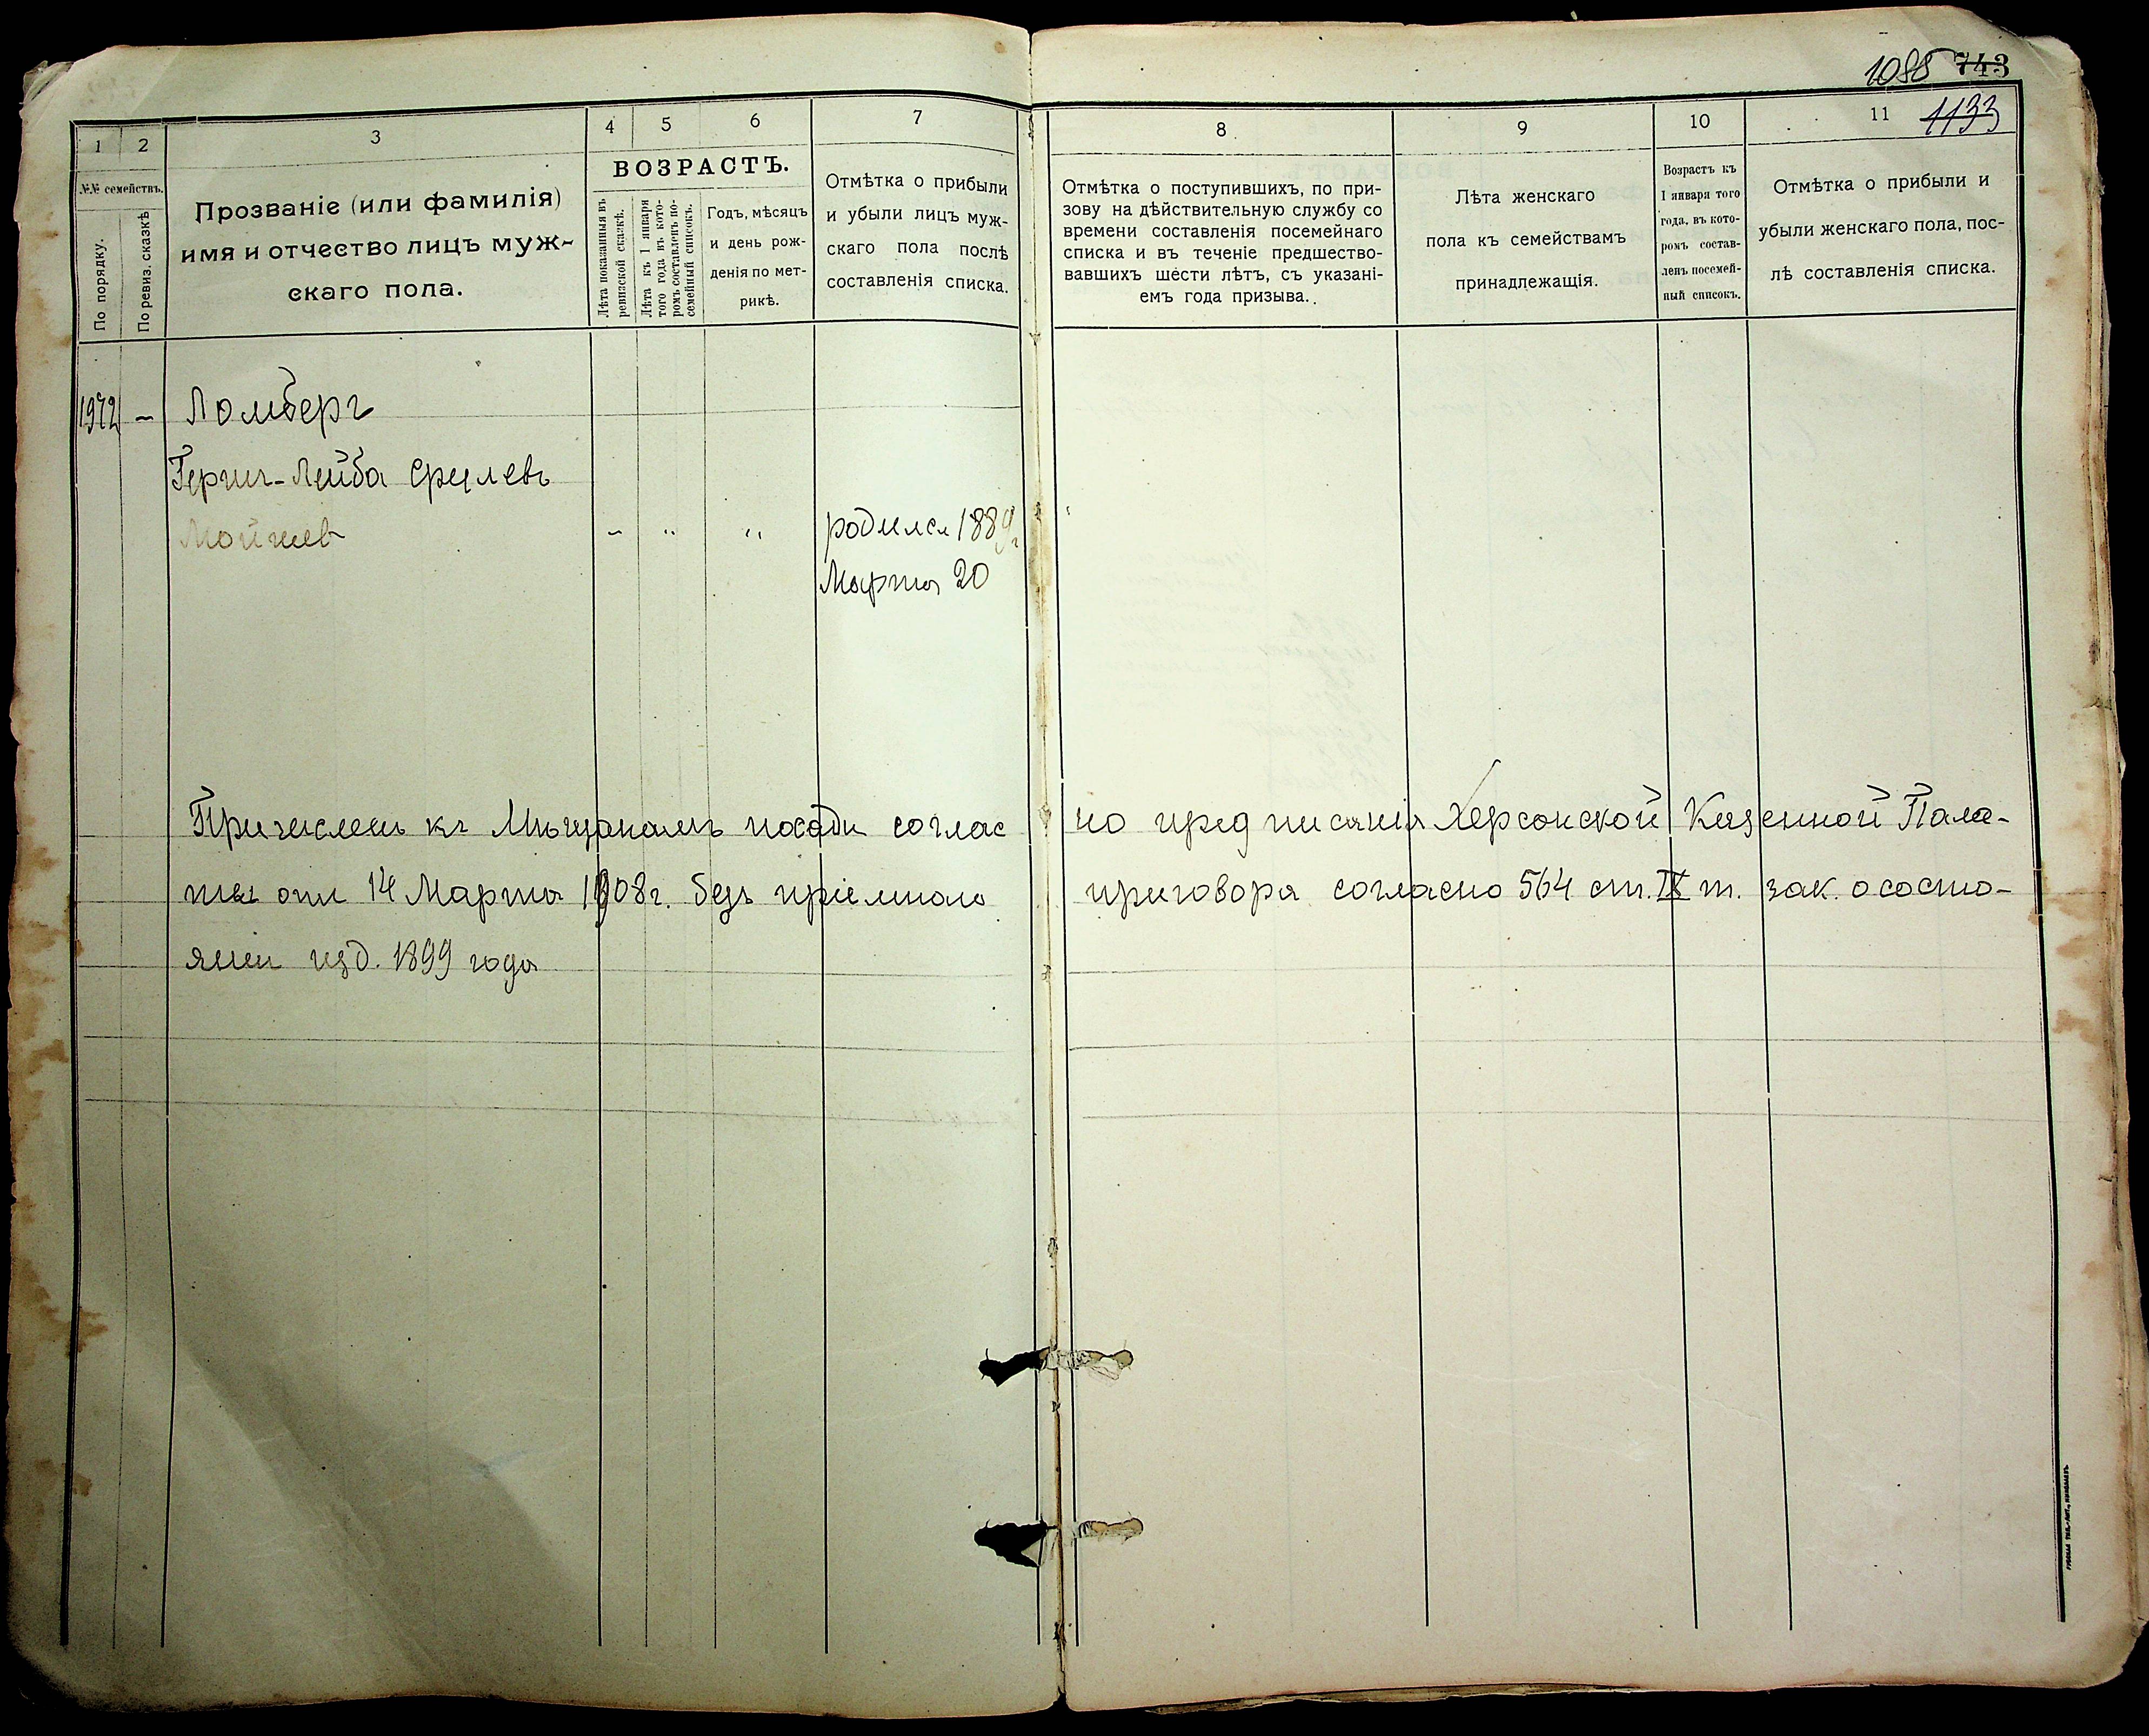 1088 743
1133
1
2
3
4
5
6
7
8
9
10
11
№№ семействъ.
По порядку.
По ревиз. сказкѣ
Прозваніе (или фамилія)
имя и отчество лицъ муж-
скаго пола.
ВОЗРАСТЪ.
Лѣта показанныя въ
ревизской сказкѣ.
Лѣта къ 1 января
того года въ кото-
ромъ составленъ по-
семейный списокъ.
Годъ, мѣсяцъ
и день рож-
денія по мет-
рикѣ.
Отмѣтка о прибыли
и убыли лицъ муж-
скаго пола послѣ
составленія списка.
Отмѣтка о поступившихъ, по при-
зову на дѣйствительную службу со
времени составленія посемейнаго
списка и въ теченіе предшество-
вавшихъ шести лѣтъ, съ указані-
емъ года призыва.
Лѣта женскаго
пола къ семействамъ
принадлежащія.
Возрастъ къ
1 января того
года, въ кото-
ромъ состав-
ленъ посемей-
ный списокъ.
Отмѣтка о прибыли и
убыли женскаго пола, пос-
лѣ составленія списка.
1972 - Ломберг
Герш-Лейба Срулевъ
Мойшев - " " родился 1889 г
Марта 20
Причислен к Мѣщанамъ посада соглас но предписанія Херсонской Казенной Пала-
ты отъ 14 Марта 1908 г. безъ пріемнаго приговора согласно 564 ст. IX т. зак. о состо-
яніи изд. 1899 года